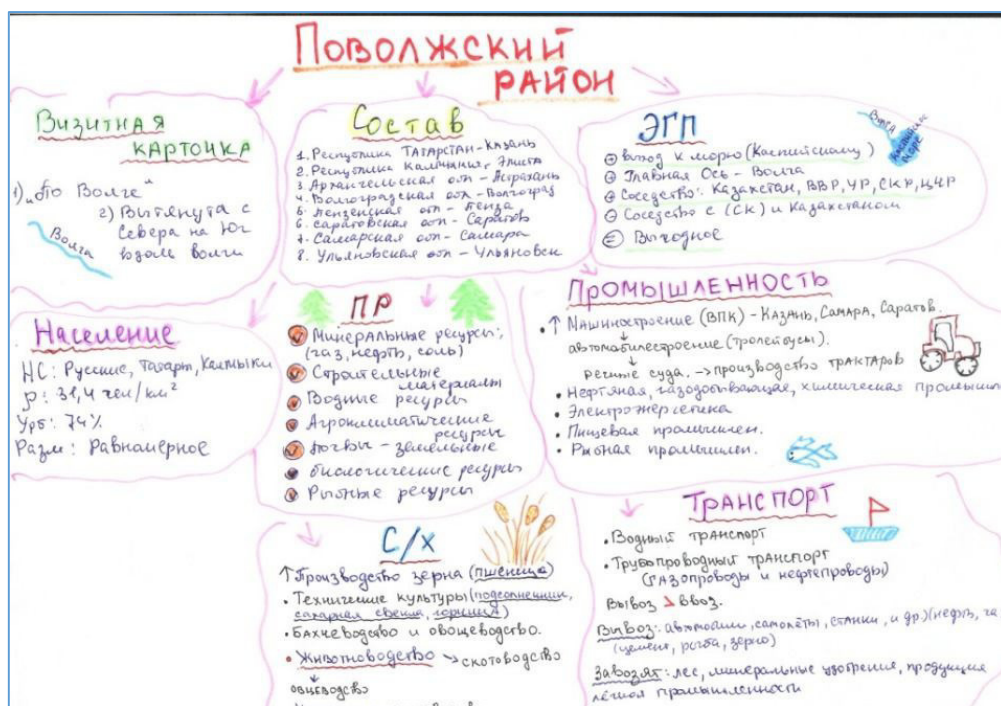 Поволжский
район
Визитная
карточка
1) „по Волге"
2) Вытянута с
Севера на Юг
вдоль волги
Волга
Состав
1. Республика Татарстан-Казань
2. Республика Калмыкия, Элиста
3. Архангельская обл - Астрахань
4. Волгоградская обл - Волгоград
5. Пензенская обл - Пенза
6. Саратовская обл - Саратов
7. Самарская обл - Самара
8. Ульяновская обл - Ульяновск
ЭГП
Волга
Каспийское
море
⊕ выход к морю (Каспийскому)
⊕ Главная Ось - Волга
⊕ Соседство: Казахстан, ВВР, УР, СКР, ЦЧР
⊖ Соседство с (СК) и Казахстаном
⊜ Выгодное
Население
НС: Русские, Татары, Калмыки
ρ: 31,4 чел/км²
Урб: 74%
Разм: Равномерное
ПР
Минеральные ресурсы;
(газ, нефть, соль)
Строительные
материалы
Водные ресурсы
Агроклиматические
ресурсы
Почвы - земельные
биологические ресурсы
Рыбные ресурсы
Промышленность
↑ Машиностроение (ВПК) - Казань, Самара, Саратов.
автомобилестроение (тролейбусы).
речные суда. → производство трактаров
• Нефтяная, газодобывающая, химическая промышл
• Электроэнергетика
• Пищевая промышлен.
• Рыбная промышлен.
С/х
↑ Производство зерна (пшеница)
• Технические культуры (подсолнечник,
сахарная свекла, горчица)
• Бахчеводство и овощеводство.
• Животноводство → скотоводство
овцеводство
Транспорт
• Водный транспорт
• Трубопроводный транспорт
(газопроводы и нефтепроводы)
Вывоз > ввоз.
Вывоз: автомобили, самолёты, станки, и др.) (нефть, га
(цемент, рыба, зерно)
Завозят: лес, минеральные удобрения, продукция
лёгкой промышленности